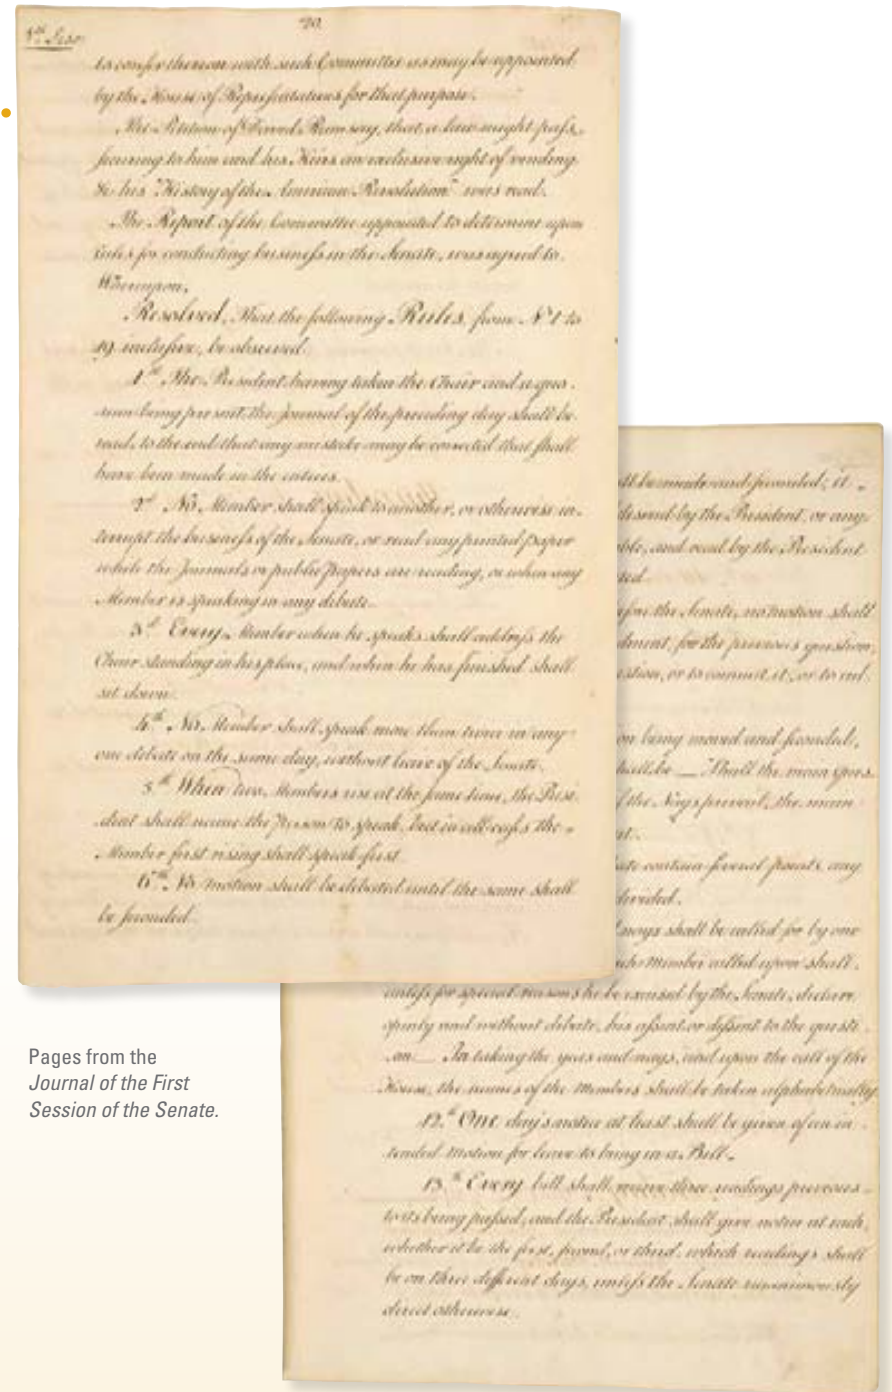 20.
to confer thereon with such Committee as may be appointed
by the House of Representatives for that purpose.
The Petition of David Ramsay, that a law might pass
securing to him and his Heirs an exclusive right of vending
&c his "History of the American Revolution" was read.
The Report of the Committee appointed to determine upon
rules for conducting business in the Senate, was agreed to.
Whereupon,
Resolved, That the following Rules, from Nº 1 to
19 inclusive, be observed.
1st The President having taken the Chair and a quo-
rum being present, the Journal of the preceding day shall be
read, to the end that any mistake may be corrected that shall
have been made in the entries.
2d No Member shall speak to another, or otherwise in-
terrupt the business of the Senate, or read any printed paper
while the Journals or public papers are reading, or when any
Member is speaking in any debate.
3d Every Member when he speaks shall address the
Chair standing in his place, and when he has finished shall
sit down.
4th No Member shall speak more than twice in any
one debate on the same day, without leave of the Senate.
5th When two Members rise at the same time, the Presi-
dent shall name the Person to speak, but in all cases the
Member first rising shall speak first.
6th No motion shall be debated until the same shall
be seconded.
ll be made and seconded, it
desired by the President, or any
ble, and read by the President
ted.
efore the Senate, no motion shall
dment, for the previous question,
estion, or to commit it, or to
on being moved and seconded,
shall be — "Shall the main ques-
f the Nays prevail, the main
t.
ate contain several points, any
divided.
nays shall be called for by one
each Member called upon shall,
unless for special reasons he be excused by the Senate, declare
openly and without debate, his assent or dissent to the questi-
on — In taking the yeas and nays, and upon the call of the
House, the names of the Members shall be taken alphabetically.
12th One day's notice at least shall be given of an in-
tended motion for leave to bring in a Bill.
13th Every bill shall receive three readings previous
to its being passed, and the President shall give notice at each,
whether it be the first, second, or third, which readings shall
be on three different days, unless the Senate unanimously
direct otherwise.
Pages from the
Journal of the First
Session of the Senate.